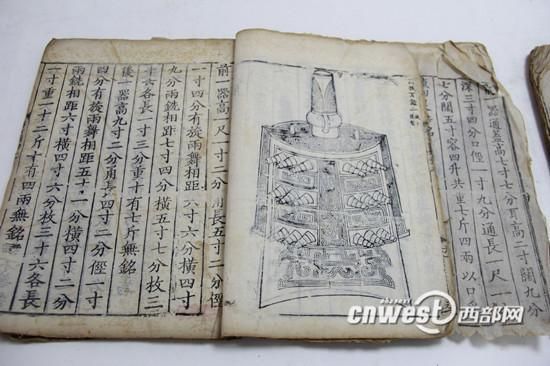 器通蓋高七寸七分耳高二寸闊九分
深三寸四分口徑一寸九分通長一尺一寸
七分闊五寸容四升共重七斤四兩以口
前一器高一尺二寸二分甬長五寸二分俓
一寸四分有旋兩舞相距六寸六分橫四寸
九分兩銑相距七寸四分橫五寸七分枚三
十六各長一寸三分重十有七斤無銘
後一器高九寸二分甬長四寸二分俓一寸
四分有旋兩舞相距五寸一分橫四寸二分
兩銑相距六寸橫四寸六分枚三十六各長
一寸重一十二斤十有四兩無銘
cnwest西部网